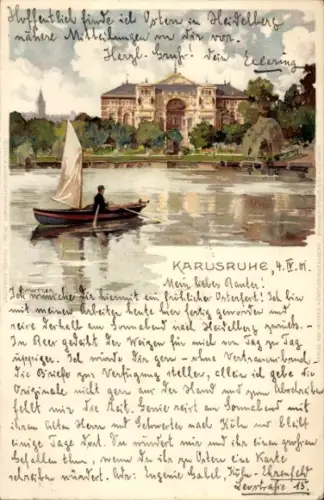 Hoffentlich finde ich Ostern in Heidelberg
nähere Mitteilungen von Dir vor.
Herzl. Gruß! Dein
KARLSRUHE, 4. IV. 01.
Mein lieber
Ich wünsche Dir hiermit ein fröhliches Osterfest! Ich bin
mit meinen Arbeiten heute hier fertig geworden und
reise deshalb am Sonnabend nach Heidelberg zurück. -
In Beer gedeiht der Weizen für mich von Tag zu Tag
üppiger. Ich würde Dir gern - ohne Vertrauensbruch -
die Briefe zur Verfügung stellen, allein ich gebe die
Originale nicht gern aus der Hand und zum Abschreiben
fehlt mir die Zeit. Genie reist am Sonnabend mit
ihrem Vater und Schwester nach Köln und bleibt
einige Tage dort. Du würdest mir und ihr einen großen
Gefallen thun, wenn Du ihr zu Ostern eine Karte
schreiben würdest. Adr: Eugenie Gabel, Köln-Ehrenfeld
15.